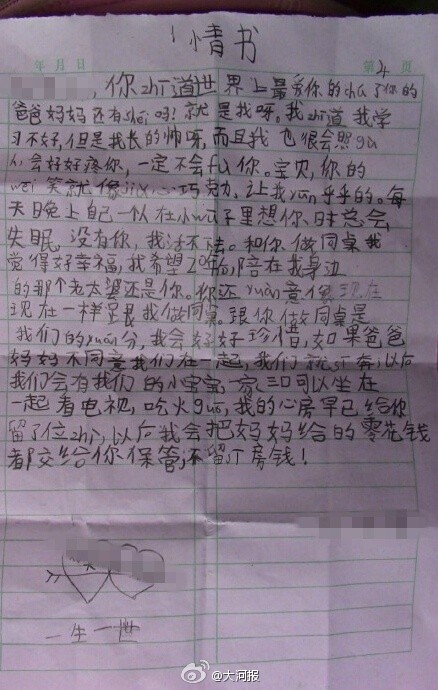 情书
年 月 日 第4页
，你zhī道世界上最爱你的chú了你的
爸爸妈妈还有shéi吗？就是我呀。我zhī道我学
习不好，但是我长的帅呀，而且我也很会照gù
人，会好好疼你，一定不会fù你。宝贝，你的
wēi笑就像巧克力，让我yūn乎乎的。每
天晚上自己一个人在小wū子里想你，时总会
失眠，没有你，我活不下去。和你做同桌我
觉得好幸福，我希望20年后，陪在我身边
的那个老太婆还是你。你还yuàn意像现在
现在一样跟我做同桌。跟你做同桌是
我们的yuán分，我会好好珍惜，如果爸爸
妈妈不同意我们在一起，我们就奔，以后
我们会有我们的小宝宝，一家三口可以坐在
一起看电视，吃火guō，我的心房早已给你
留了位zhi，以后我会把妈妈给的零花钱
都交给你保管，不留房钱！
一生一世
@大河报